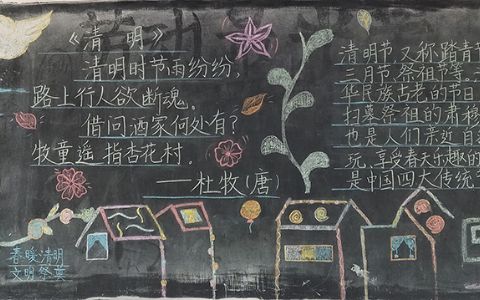 《清 明》
清明时节雨纷纷,
路上行人欲断魂。
借问酒家何处有?
牧童遥指杏花村。
——杜牧(唐)
春暖清明
文明祭奠
清明节,又称踏青节
三月节、祭祖节等。
华民族古老的节日
扫墓祭祖的肃穆
也是人们亲近自
玩、享受春天乐趣的
是中国四大传统